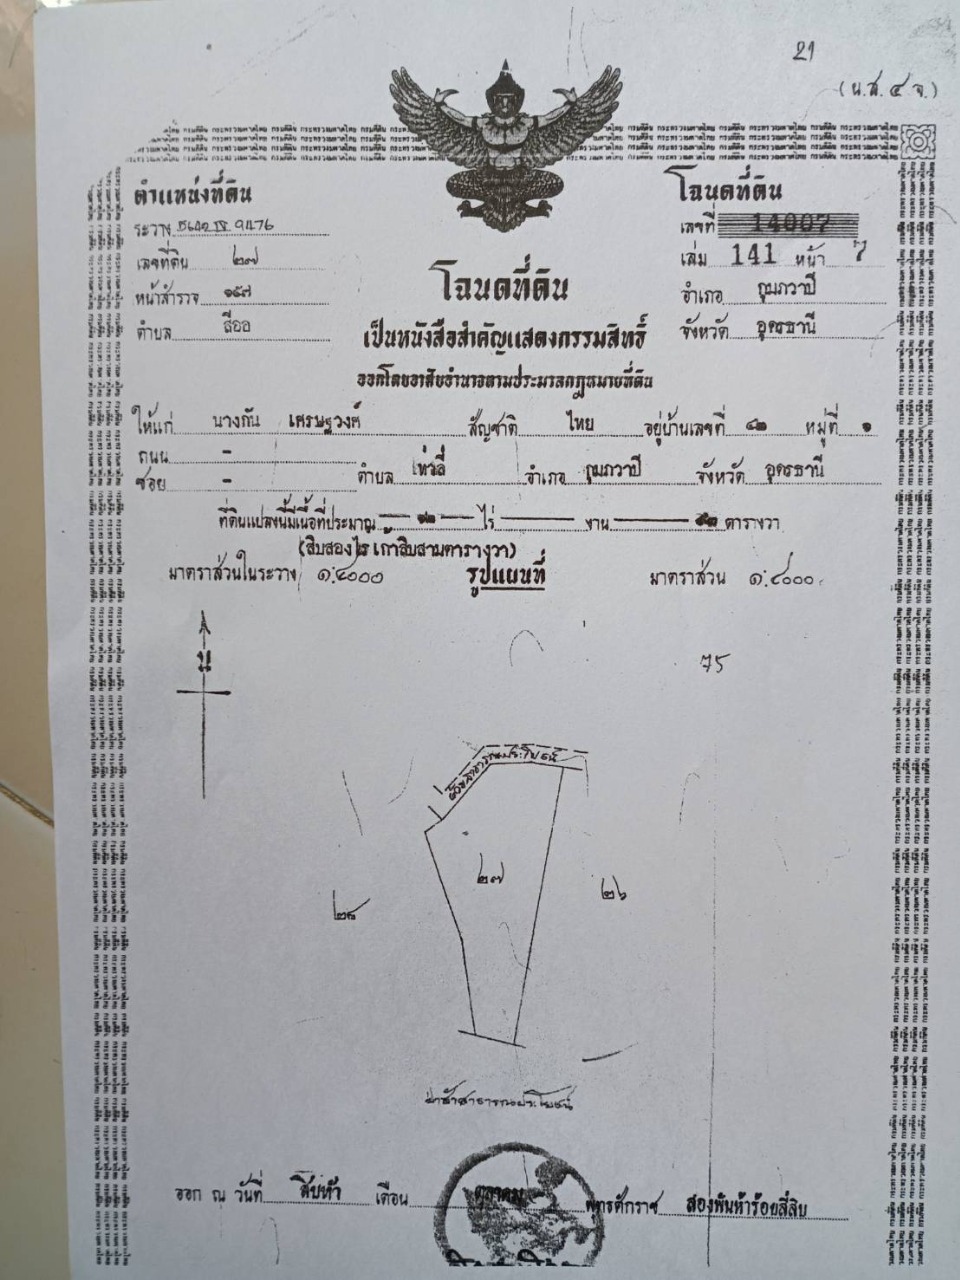 21
(น.ส.๔ จ.)
ตำแหน่งที่ดิน
ระวาง
เลขที่ดิน ๒๗
หน้าสำรวจ ๑๕๗
ตำบล สีออ
โฉนดที่ดิน
เลขที่ 14007
เล่ม 141 หน้า 7
อำเภอ กุมภวาปี
จังหวัด อุดรธานี
โฉนดที่ดิน
เป็นหนังสือสำคัญแสดงกรรมสิทธิ์
ออกโดยอาศัยอำนาจตามประมวลกฎหมายที่ดิน
ให้แก่ นางกัน เศรษฐวงศ์ สัญชาติ ไทย อยู่บ้านเลขที่ หมู่ที่ ๑
ถนน -
ซอย - ตำบล อำเภอ กุมภวาปี จังหวัด อุดรธานี
ที่ดินแปลงนี้มีเนื้อที่ประมาณ ๑๒ ไร่ งาน ๙๓ ตารางวา
(สิบสองไร่ เก้าสิบสามตารางวา)
มาตราส่วนในระวาง ๑:๔๐๐๐ รูปแผนที่ มาตราส่วน ๑:๔๐๐๐
น
75
ห้วยสาธารณประโยชน์
๒๗
๒๖
๒๘
ป่าช้าสาธารณประโยชน์
ออก ณ วันที่ สิบห้า เดือน ตุลาคม พุทธศักราช สองพันห้าร้อยสี่สิบ